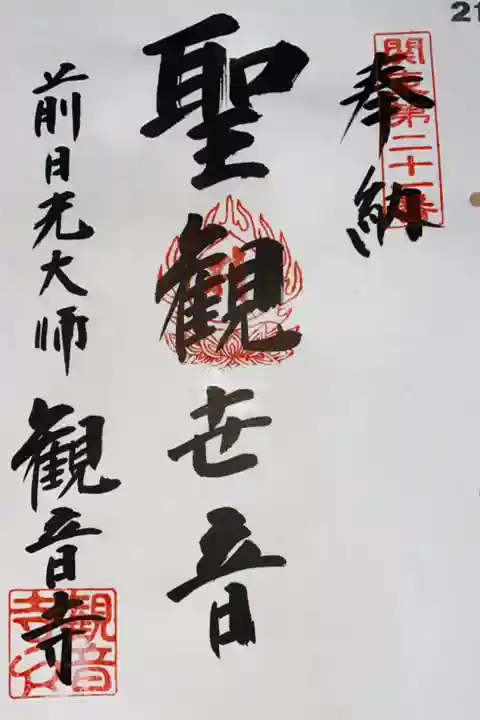 21
関東第二十一番
奉納
聖観世音
前日光大師
観音寺
観音寺